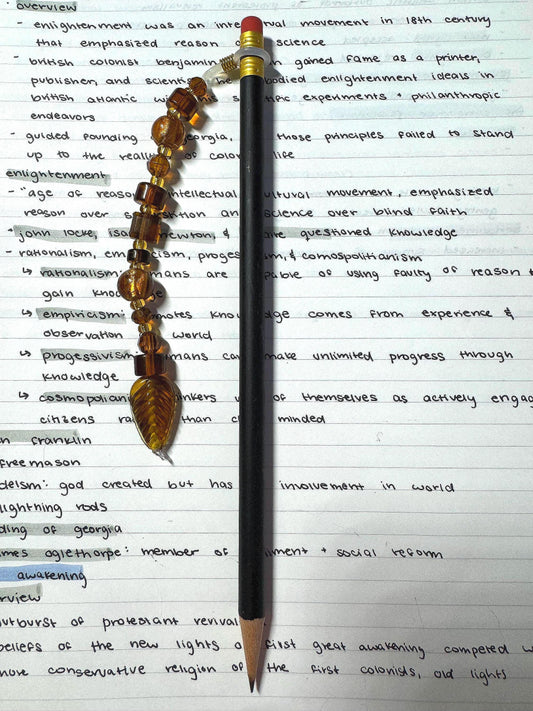 overview
- enlightenment was an intellectual movement in 18th century
that emphasized reason science
- british colonist benjamin gained fame as a printer,
publisher, and scientist embodied enlightenment ideals in
british atlantic with his scientific experiments + philanthropic
endeavors
- guided founding georgia, those principles failed to stand
up to the reality of colonial life
enlightenment
- "age of reason intellectual cultural movement, emphasized
reason over superstition and science over blind faith
- john locke, isaac newton, & questioned knowledge
- rationalism, empiricism, progessivism, & comospolitianism
↳ rationalism: humans are capable of using faulty of reason t
gain knowledge
↳ empiricism: promotes knowledge comes from experience &
observation world
↳ progessivism: humans can make unlimited progress through
knowledge
↳ cosmopoliani thinkers of themselves as actively engag
citizens rather than minded
n franklin
freemason
deism: god created but has involvement in world
lightning rods
ding of georgia
mes oglethorpe: member of parliment + social reform
awakening
rview
outburst of protestant revival
beliefs of the new lights of first great awakening competed w
more conservative religion of the first colonists, old lights